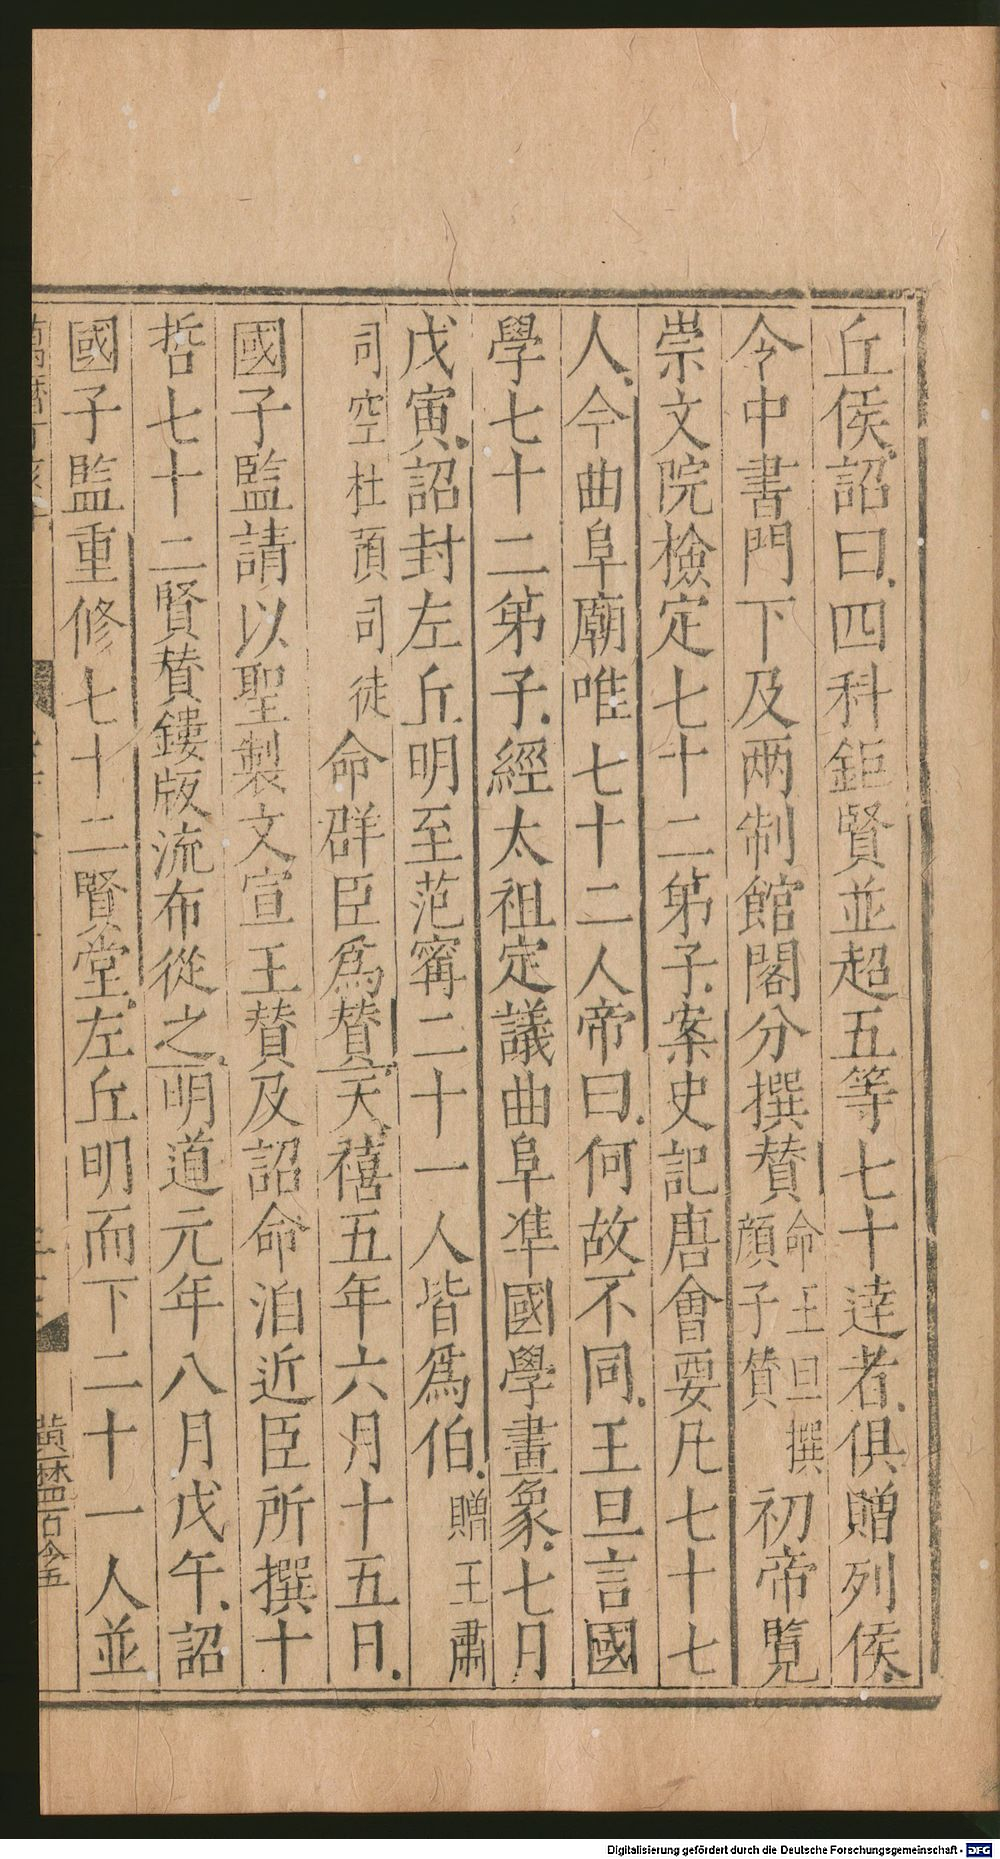 丘侯詔曰四科鉅賢並超五等七十達者俱贈列侯
令中書門下及两制館閣分撰賛命王旦撰顔子賛初帝覧
崇文院檢定七十二弟子案史記唐會要凡七十七
人今曲阜廟唯七十二人帝曰何故不同王旦言國
學七十二弟子經太祖定議曲阜准國學畫象七月
戊寅詔封左丘明至范甯二十一人皆爲伯贈王肅
司空杜預司徒命群臣爲賛天禧五年六月十五日
國子監請以聖製文宣王賛及詔命洎近臣所撰十
哲七十二賢賛鏤版流布從之明道元年八月戊午詔
國子監重修七十二賢堂左丘明而下二十一人並
Digitalisierung gefördert durch die Deutsche Forschungsgemeinschaft - DFG